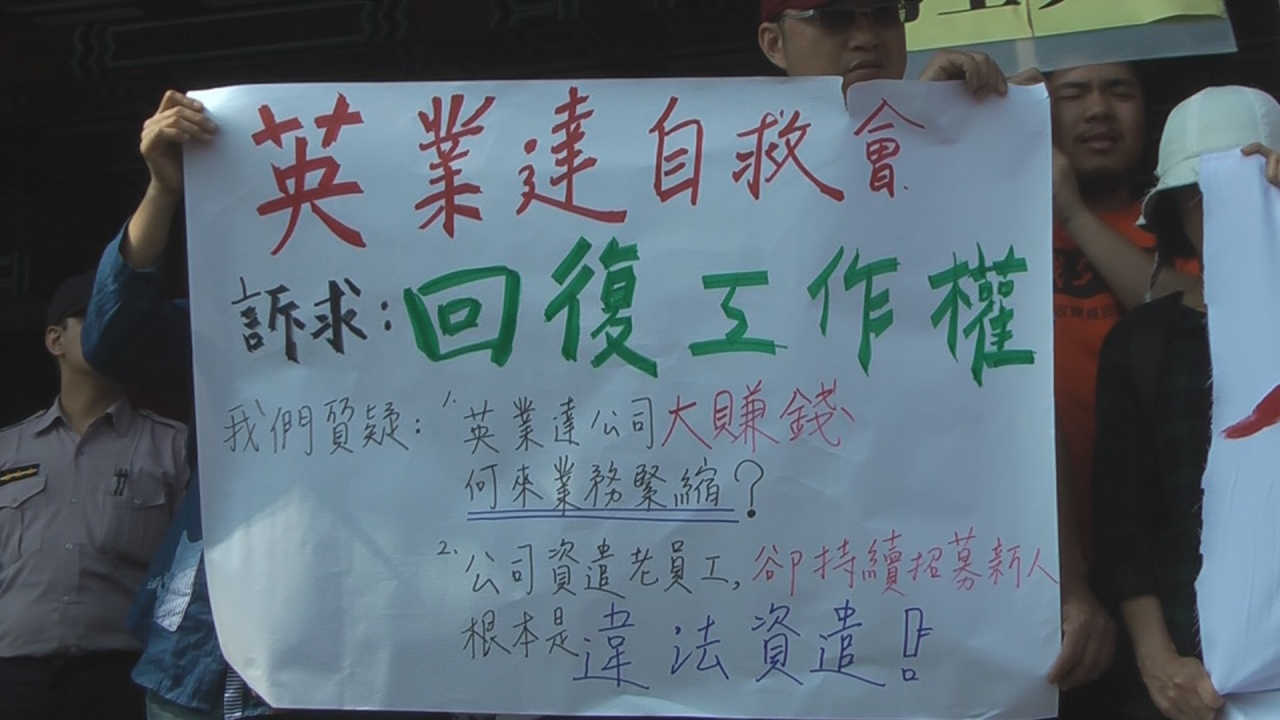 英業達自救會
訴求:回復工作權
我們質疑: 1. 英業達公司大賺錢
何來業務緊縮?
2. 公司資遣老員工,卻持續招募新人
根本是違法資遣!